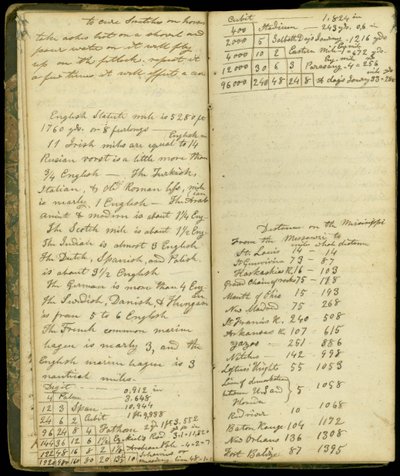 to cure Snuffles on horses
take ashes hot on a shovel and
pour water on it will fly
up on the fetlock, repeat it
a few times it will effect a cure
English Statute mile is 5280 ft
1760 yds. or 8 furlongs
English m
11 Irish miles are equal to 14
Russian vorst is a little more than
3/4 English — The Turkish,
Italian, & old Roman mile
is nearly 1 English — The Arab
ancient & modern is about 1¼ Eng
The Scotch mile is about 1½ Eng
The Indian is almost 3 English
The Dutch, Spanish, and Polish
is about 3½ English
The German is more than 4 Eng
The Swedish, Danish, & Hungarian
is from 5 to 6 English
The French common marine
league is nearly 3, and the
English marine league is 3
nautical miles.
Digit — 0,912 in
4 Palm 3,648
12 3 Span 10,944
24 6 2 Cubit 1 ft 9,888
96 24 8 4 Fathom 7 ft 3.552
144 36 12 6 1½ Ezekiels Reed
192 48 16 8 2 Arabian Pole
Cubit 1.824 in
400 Stadium — 243 yds. 0.6 in
2000 5 Sabbath Day's Journey 1216 yds
4000 10 2 Eastern Mile 1 — 672 yds.
12000 30 6 3 Parasang 4 — 256
96000 240 48 24 8 A day's Journey 33 - 288
Distances on the Mississippi
From the Missouri to
mile whole distance
St. Louis 14 — 14
St Genevieve 73 — 87
Kaskaskias R. 16 — 103
Grand Chain of rocks 75 — 178
Mouth of Ohio 15 — 193
New Madrid 75 — 268
St Francis R. 240 508
Arkansas R 107 — 615
Yazoo — 251 886
Natchez 142 998
Loftus's Height 55 1053
Line of demarkation
between U.S. and 5 — 1058
Florida
Red river 10 1068
Baton Rouge 104 1172
New Orleans 136 1308
Fort Balize 87 1395